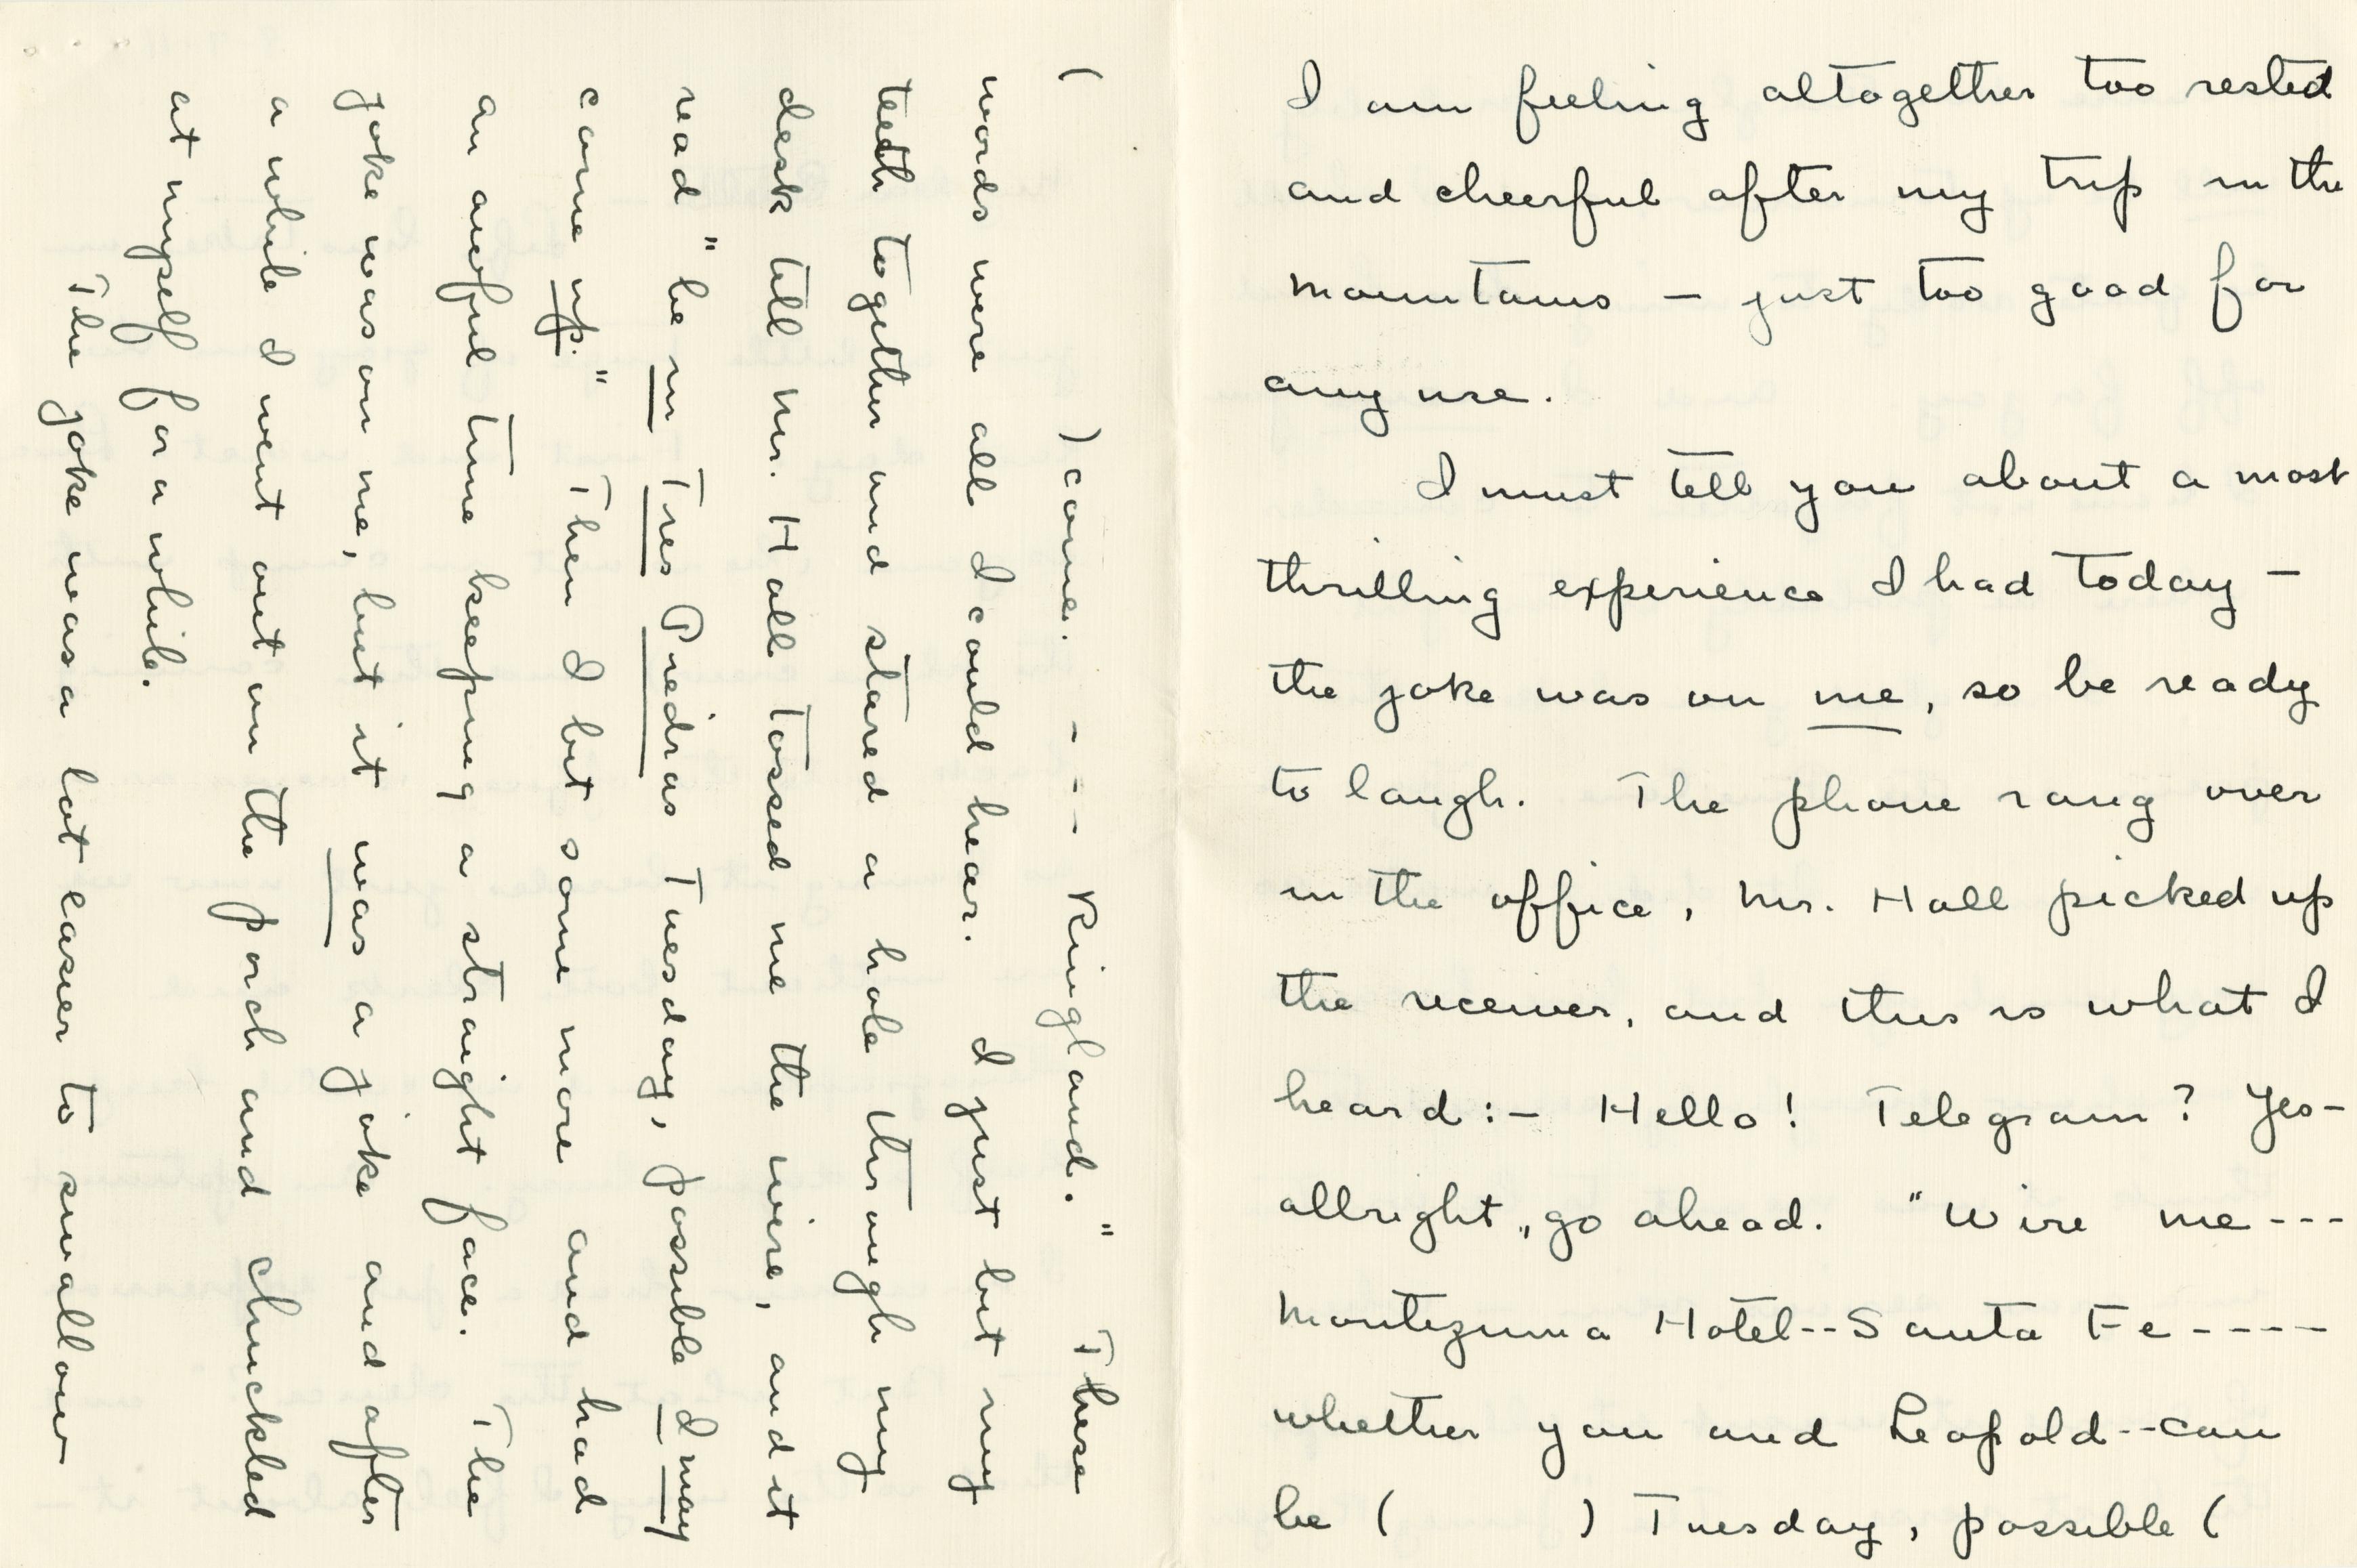 I am feeling altogether too rested
and cheerful after my trip in the
mountains — just too good for
any use.
I must tell you about a most
thrilling experience I had today —
the joke was on me, so be ready
to laugh. The phone rang over
in the office, Mr. Hall picked up
the receiver, and this is what I
heard:— Hello! Telegram? Yes—
allright, go ahead. "Wire me---
Montezuma Hotel--Santa Fe----
whether you and Leopold--can
be ( ) Tuesday, possible (
( ) come. --- Ringland." These
words were all I could hear. I just bit my
teeth together and stared a hole through my
desk till Mr. Hall tossed me the wire, and it
read "be in Tres Piedras Tuesday, possible I may
come up." Then I bit some more and had
an awful time keeping a straight face. The
joke was on me, but it was a joke and after
a while I went out on the porch and chuckled
at myself for a while.
The joke was a lot easier to swallow